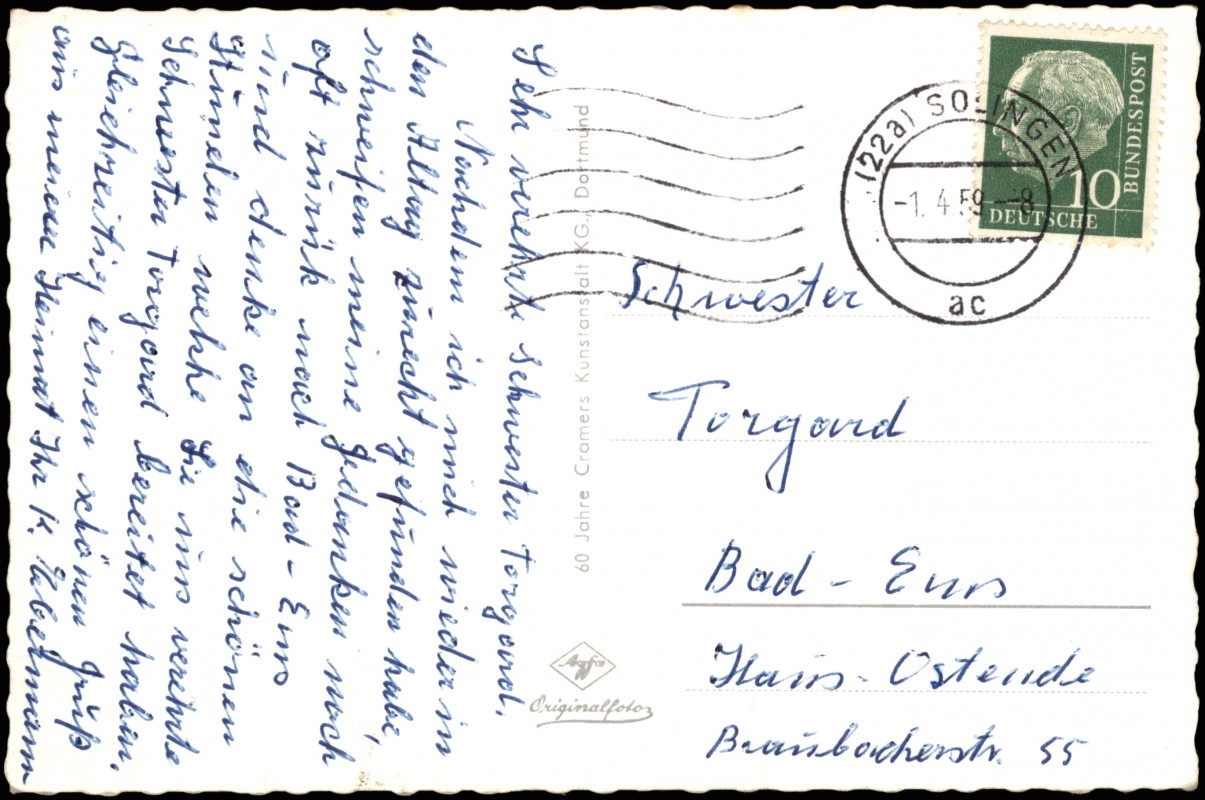 Sehr verehrte Schwester Torgard,
Nachdem ich mich wieder in
den Alltag zurecht gefunden habe,
schweifen meine Gedanken noch
oft zurük nach Bad-Ems
und denke an die schönen
Stunden welche Sie uns verehrte
Schwester Torgard bereitet haben.
Gleichzeitig einen schönen Gruß
aus meiner Heimat Ihr K.
60 Jahre Cramers Kunstanstalt KG, Dortmund
Agfa
Originalfoto
(22a) SOLINGEN
-1.4.59--8
ac
10
DEUTSCHE
BUNDESPOST
Schwester
Torgard
Bad-Ems
Haus-Ostende
Braubacherstr. 55